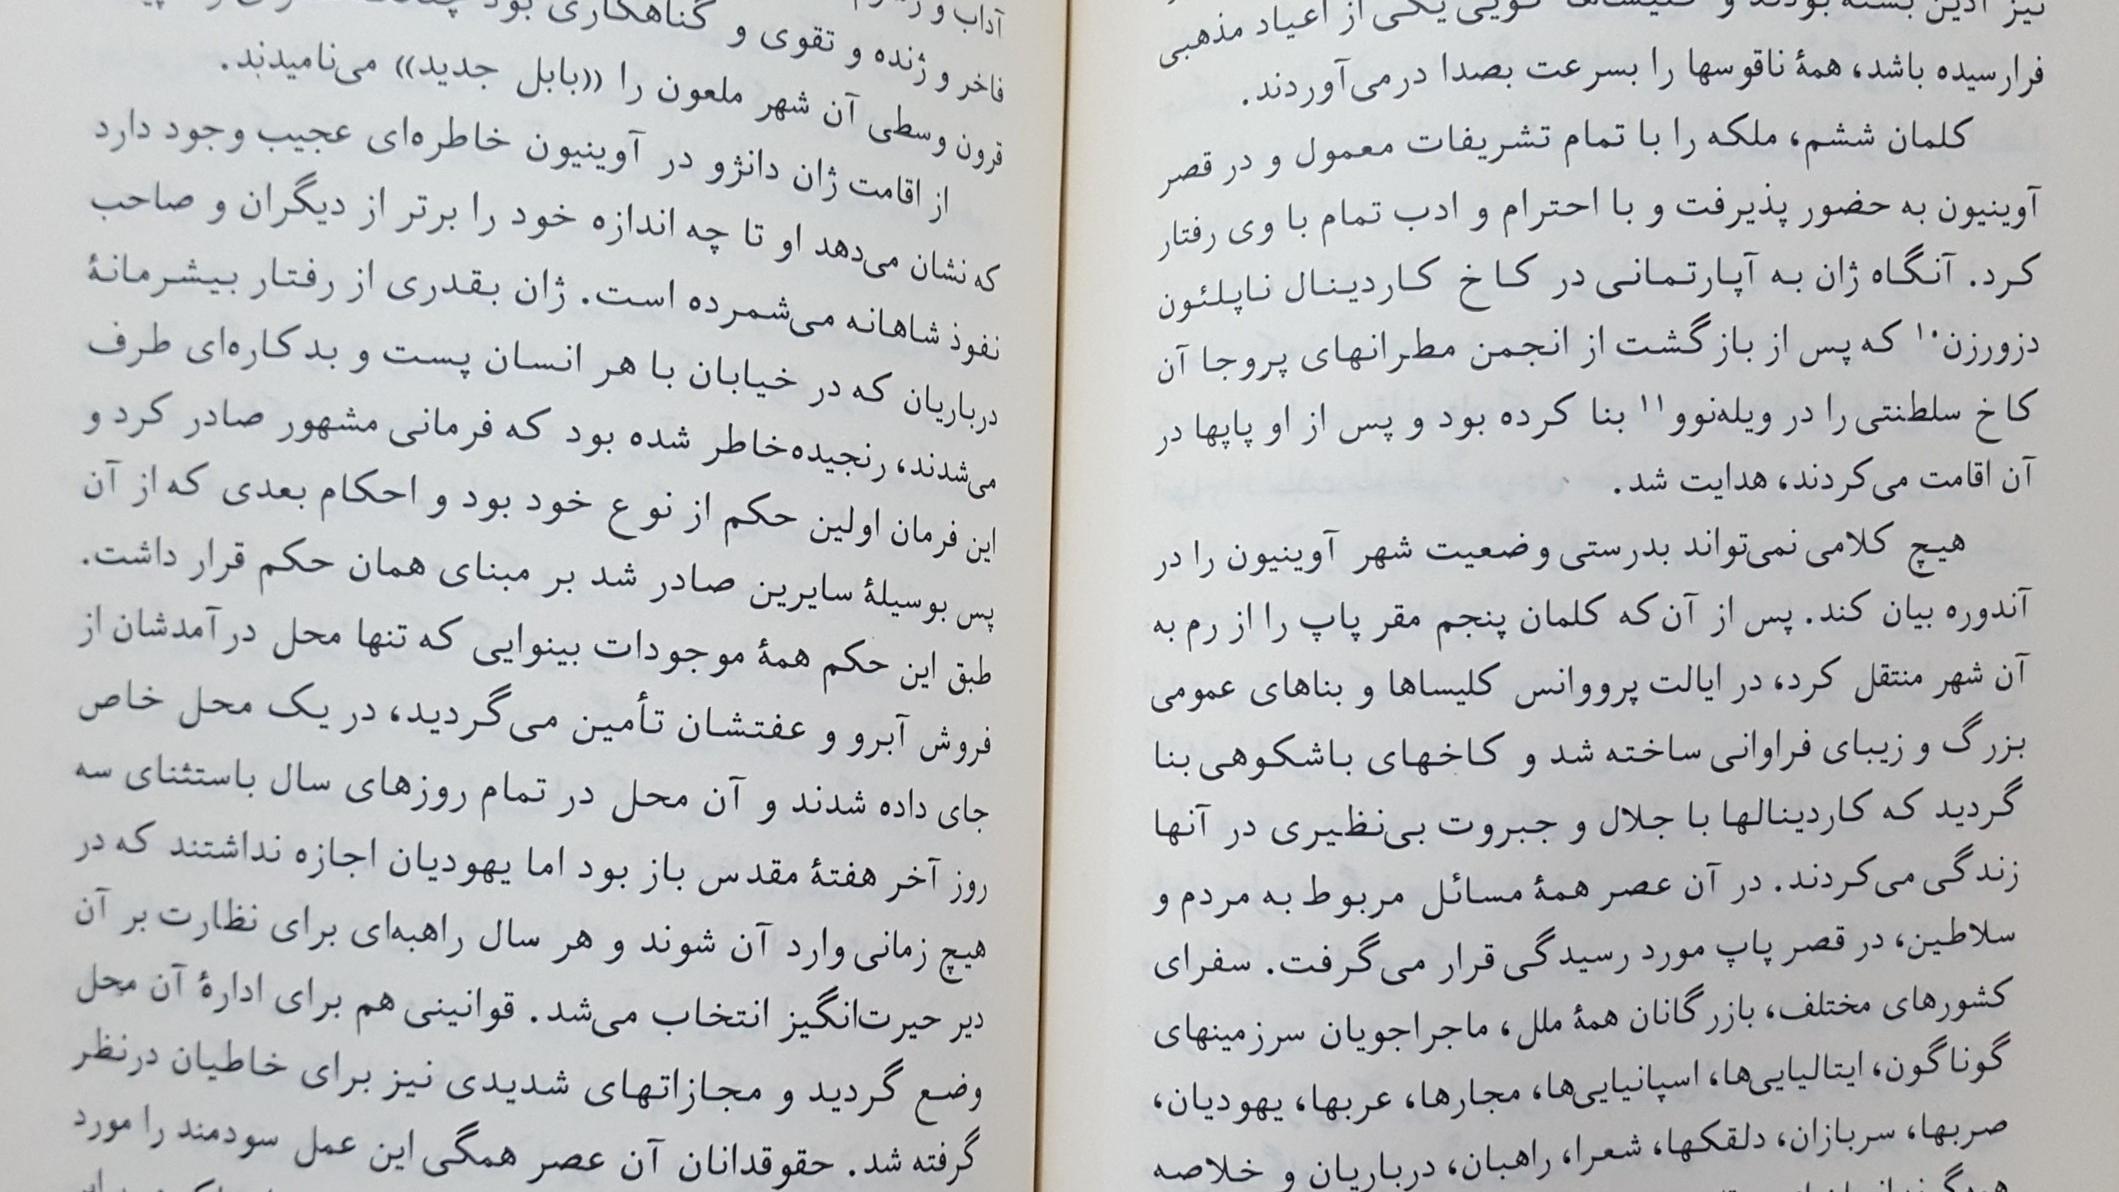 نیز آذین بسته بودند و کلیساها گویی یکی از اعیاد مذهبی
فرارسیده باشد، همهٔ ناقوسها را بسرعت بصدا درمی‌آوردند.
کلمان ششم، ملکه را با تمام تشریفات معمول و در قصر
آوینیون به حضور پذیرفت و با احترام و ادب تمام با وی رفتار
کرد. آنگاه ژان به آپارتمانی در کاخ کاردینال ناپلئون
دزورزن۱۰ که پس از بازگشت از انجمن مطرانهای پروجا آن
کاخ سلطنتی را در ویله‌نوو۱۱ بنا کرده بود و پس از او پاپها در
آن اقامت می‌کردند، هدایت شد.
هیچ کلامی نمی‌تواند بدرستی وضعیت شهر آوینیون را در
آندوره بیان کند. پس از آن‌که کلمان پنجم مقر پاپ را از رم به
آن شهر منتقل کرد، در ایالت پرووانس کلیساها و بناهای عمومی
بزرگ و زیبای فراوانی ساخته شد و کاخهای باشکوهی بنا
گردید که کاردینالها با جلال و جبروت بی‌نظیری در آنها
زندگی می‌کردند. در آن عصر همهٔ مسائل مربوط به مردم و
سلاطین، در قصر پاپ مورد رسیدگی قرار می‌گرفت. سفرای
کشورهای مختلف، بازرگانان همهٔ ملل، ماجراجویان سرزمینهای
گوناگون، ایتالیایی‌ها، اسپانیایی‌ها، مجارها، عربها، یهودیان،
صربها، سربازان، دلقکها، شعرا، راهبان، درباریان و خلاصه
آداب و
فاخر و ژنده و تقوی و گناهکاری بود
قرون وسطی آن شهر ملعون را «بابل جدید» می‌نامیدند.
از اقامت ژان دانژو در آوینیون خاطره‌ای عجیب وجود دارد
که نشان می‌دهد او تا چه اندازه خود را برتر از دیگران و صاحب
نفوذ شاهانه می‌شمرده است. ژان بقدری از رفتار بیشرمانهٔ
درباریان که در خیابان با هر انسان پست و بدکاره‌ای طرف
می‌شدند، رنجیده‌خاطر شده بود که فرمانی مشهور صادر کرد و
این فرمان اولین حکم از نوع خود بود و احکام بعدی که از آن
پس بوسیلهٔ سایرین صادر شد بر مبنای همان حکم قرار داشت.
طبق این حکم همهٔ موجودات بینوایی که تنها محل درآمدشان از
فروش آبرو و عفتشان تأمین می‌گردید، در یک محل خاص
جای داده شدند و آن محل در تمام روزهای سال باستثنای سه
روز آخر هفتهٔ مقدس باز بود اما یهودیان اجازه نداشتند که در
هیچ زمانی وارد آن شوند و هر سال راهبه‌ای برای نظارت بر آن
دیر حیرت‌انگیز انتخاب می‌شد. قوانینی هم برای ادارهٔ آن محل
وضع گردید و مجازاتهای شدیدی نیز برای خاطیان درنظر
گرفته شد. حقوقدانان آن عصر همگی این عمل سودمند را مورد